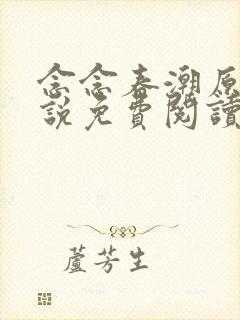 念念春潮原
說免費閱讀
蘆芳生